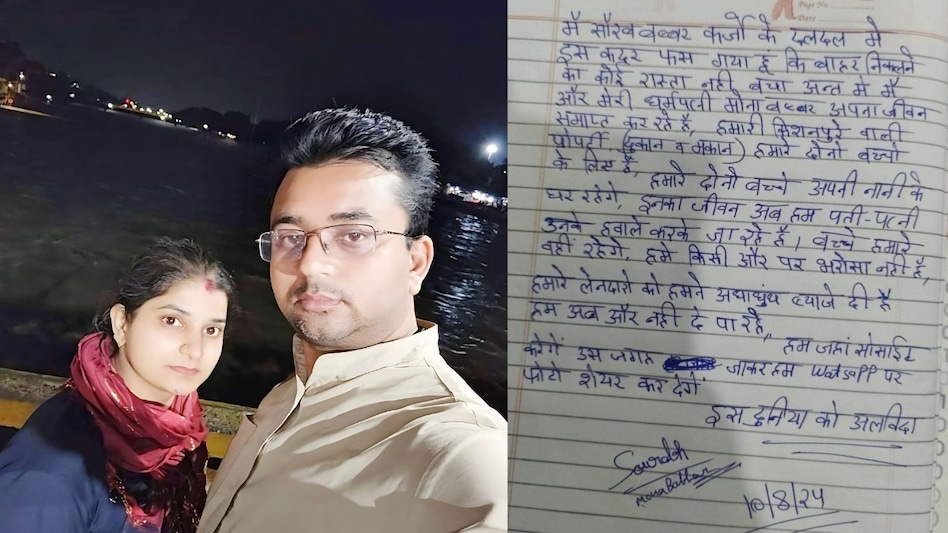 Page No.
Date
मैं सौरव बब्बर कर्जो के दलदल मे
इस कदर फस गया हूं कि बाहर निकलने
का कोई रास्ता नही बचा अन्त मे मैं
और मेरी धर्मपत्नी मोना बब्बर अपना जीवन
समाप्त कर रहे है, हमारी किशनपुरे वाली
प्रोपर्टी (दुकान व मकान) हमारे दोनो बच्चो
के लिए है, हमारे दोनो बच्चे अपनी नानी के
घर रहेगे, इनका जीवन अब हम पती-पत्नी
उनके हवाले करके जा रहे है। बच्चे हमारे
वहीं रहेगे, हमे किसी और पर भरोसा नही है,
हमारे लेनदारो को हमने अंधाधुंध ब्याजे दी है
हम अब और नही दे पा रहे,
हम जहां सोसाईट
करेगें उस जगह जाकर हम watsapp पर
फोटो शेयर कर देगें
इस दुनिया को अलविदा
Sourabh
Mona Babbar
10/8/24